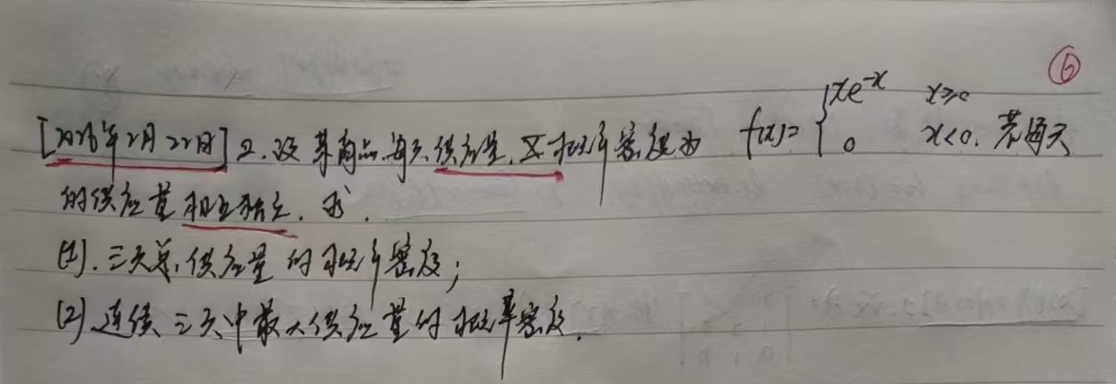 ⑥
[2026年2月22日] 2. 设某商品每天供应量 X 概率密度为 f(x)= { xe^{-x} x≥0 0 x<0. 若每天
的供应量相互独立. 求.
(1). 三天总供应量的概率密度;
(2) 连续三天中最大供应量的概率密度.